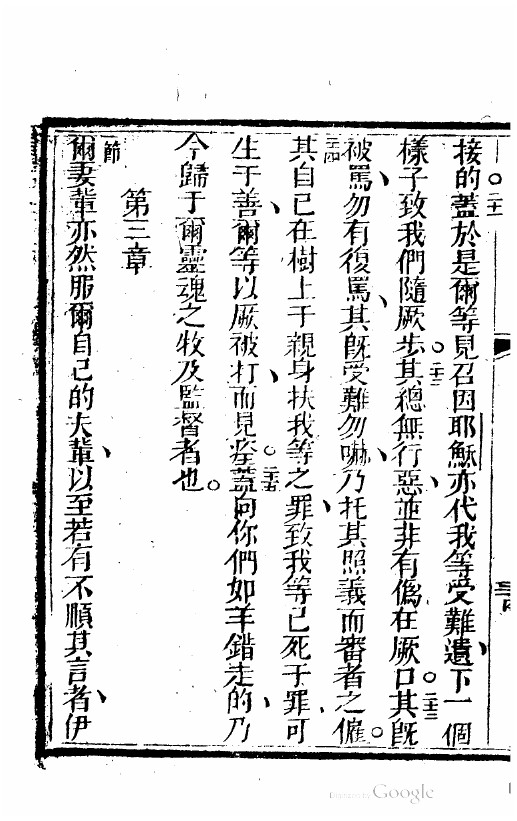 接的。二十一蓋於是爾等見召因耶穌亦代我等受難、遺下一個
樣子致我們隨厥步。二十二其總無行惡、並非有僞在厥口。二十三其旣
被罵、勿有復罵、其旣受難勿嚇、乃托其照義而審者之僱。
二十四其自己在樹上于親身扶我等之罪、致我等已死于罪可
生于善、爾等以厥被打、而見痊。二十五蓋向你們如羊錯走的、乃
今歸于爾靈魂之牧及監督者也。
第三章
節爾妻輩亦然服爾自己的夫輩、以至若有不順其言者、伊
Google